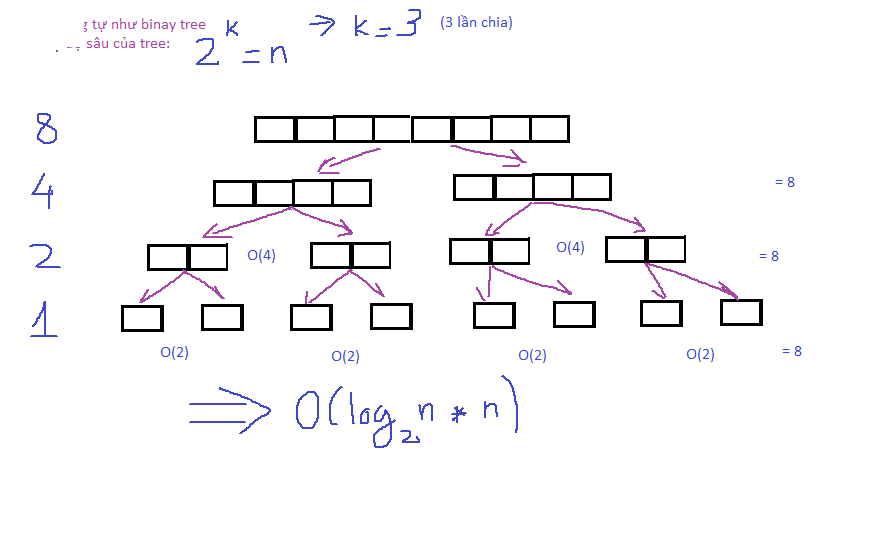 tự như binay tree
sâu của tree: 2^k = n => k = 3 (3 lần chia)
8
4 = 8
2 O(4) O(4) = 8
1
O(2) O(2) O(2) O(2) = 8
=> O(log₂n * n)